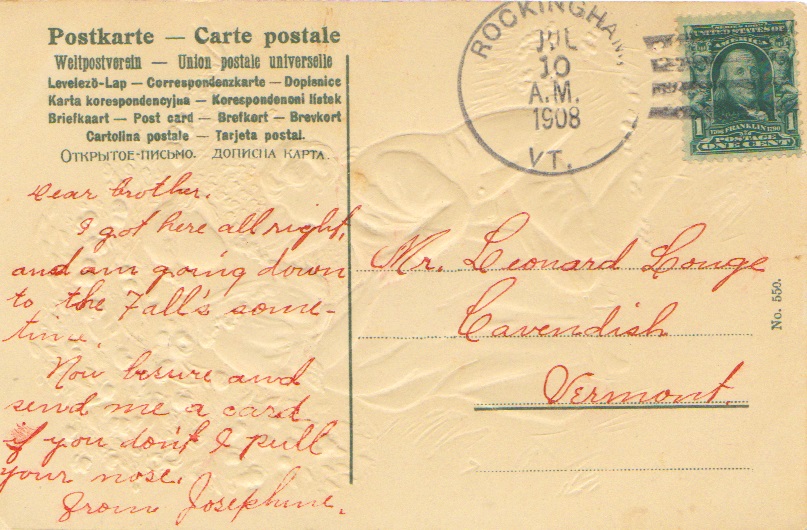 Postkarte — Carte postale
Weltpostverein — Union postale universelle
Levelező-Lap — Correspondenzkarte — Dopisnice
Karta korespondencyjna — Korespondenoni listek
Briefkaart — Post card — Brefkort — Brevkort
Cartolina postale — Tarjeta postal.
Открытое-письмо. дописна карта.
ROCKINGHAM,
JUL
10
A.M.
1908
VT.
UNITED STATES OF
AMERICA
1 1
FRANKLIN
POSTAGE
ONE CENT
Dear brother.
I got here all right,
and am going down
to the Fall's some-
time.
Now besure and
send me a card
if you don't I pull
your nose.
From Josephine.
Mr. Leonard Louge
Cavendish
Vermont.
No. 550.